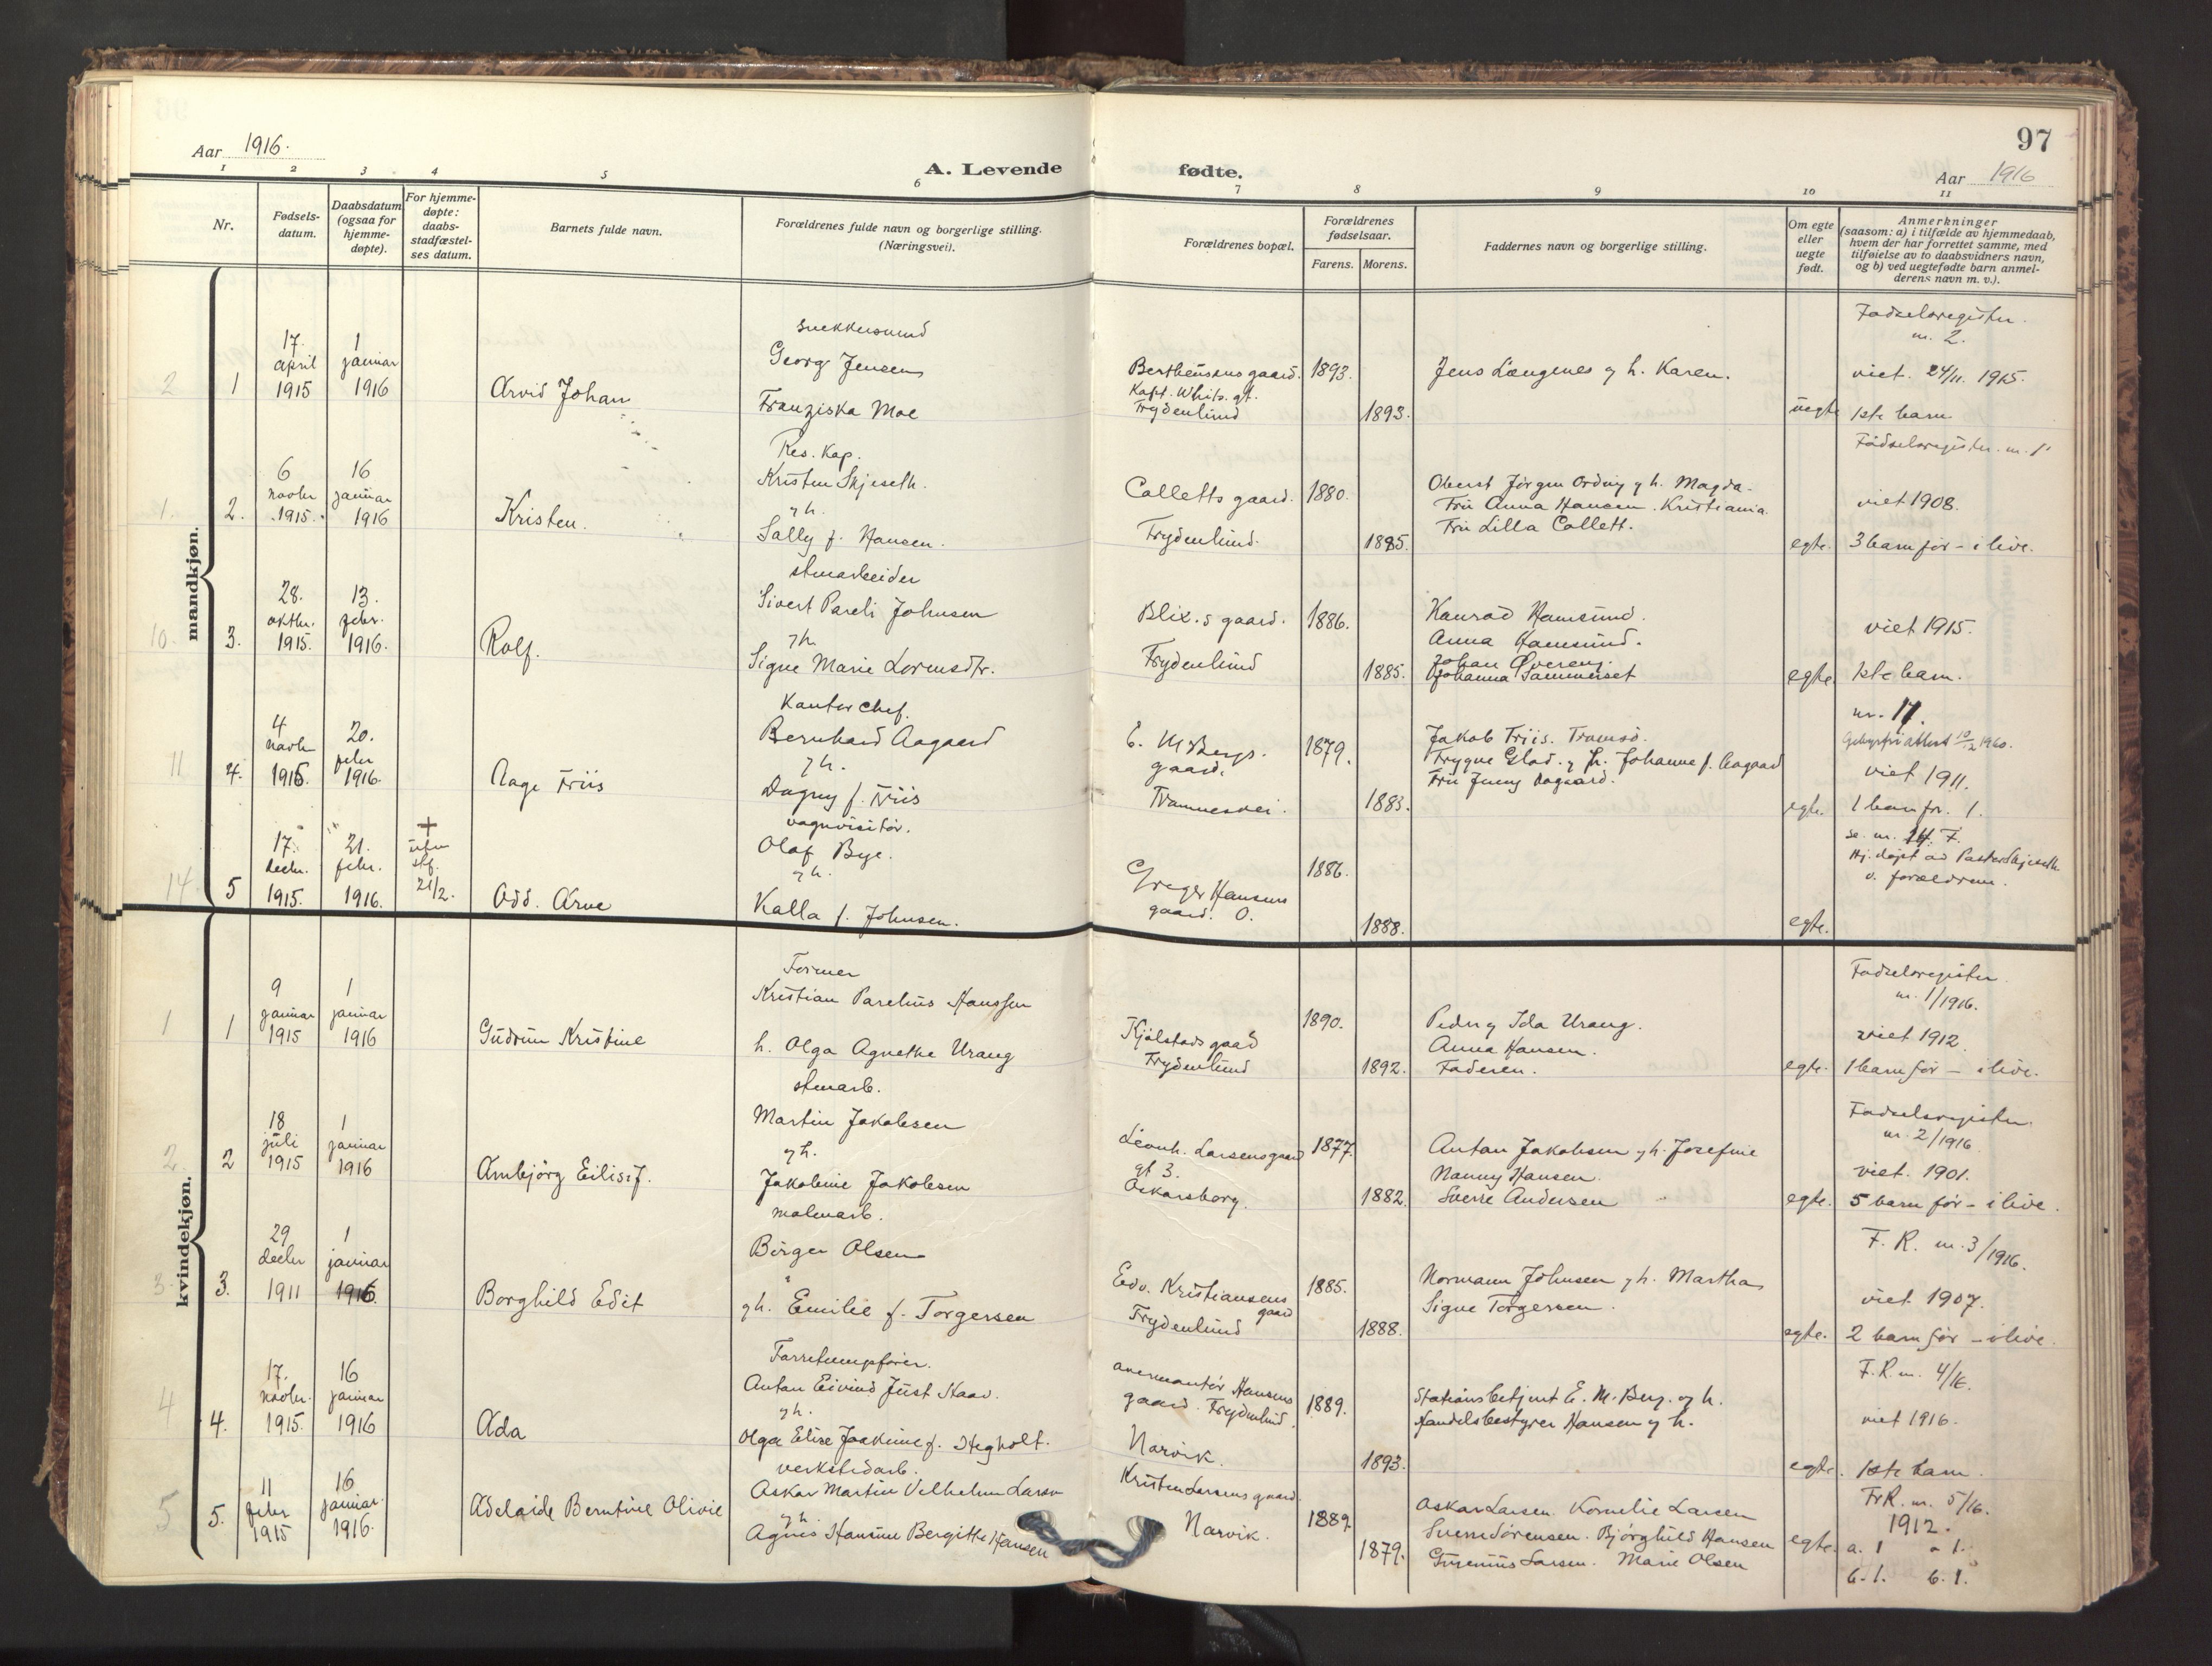 97
Aar 1916.
A. Levende fødte.
Aar 1916
1 2 3 4 5 6 7 8 9 10 11
Nr.
Fødsels-
datum.
Daabsdatum
(ogsaa for
hjemme-
døpte).
For hjemme-
døpte:
daabs-
stadfæstel-
ses datum.
Barnets fulde navn.
Forældrenes fulde navn og borgerlige stilling.
(Næringsvei).
Forældrenes bopæl.
Forældrenes
fødselsaar.
Farens. Morens.
Faddernes navn og borgerlige stilling.
Om egte
eller
uegte
født.
Anmerkninger
(saasom: a) i tilfælde av hjemmedaab,
hvem der har forrettet samme, med
tilføielse av to daabsvidners navn,
og b) ved uegtefødte barn anmel-
derens navn m. v.).
mandkjøn.
2 1
17.
april
1915
1
januar
1916
Arvid Johan
snekkersvend
Georg Jensen
Franziska Moe
Bertheusens gaard.
Kapt. White. gt.
Frydenlund
1893.
1893.
Jens Længenes og h. Karen.
uegte
Fødselsregister
nr. 2.
viet. 24/11. 1915.
1ste barn
1. 2.
6
novbr
1915.
16
januar
1916
Kristen.
Res. Kap.
Kristen Skjeseth.
og h.
Sally f. Hansen.
Colletts gaard.
Frydenlund.
1880.
1885.
Oberst Jörgen Ording og h. Magda.
Fru Anna Hansen. Kristiania.
Fru Lilla Collett.
egte.
Fødselsregister. nr. 1
viet 1908.
3 barn før - i live.
10. 3.
28.
oktbr.
1915.
13.
febr.
1916.
Rolf.
stenarbeider
Sivert Pareli Johnsen
og h.
Signe Marie Lorensdtr.
Blix.s gaard.
Frydenlund
1886.
1885.
Konrad Hamsund.
Anna Hamsund.
Johan Øvereng.
Johanna Sammerset
egte.
viet 1915.
1ste barn.
11 4.
4
novbr
1915
20.
febr
1916.
Aage Friis
Kontorchef.
Bernhard Aagaard
og h.
Dagny f. Friis
E. M. Bergs.
gaard.
Framnesvei.
1879.
1883.
Jakob Friis. Tromsö.
Trygve Glad. og fr. Johanne f. Aagaard
Fru Jenny Aagaard.
egte.
nr. 11.
Gebyrfri attest 10/12 1960.
viet 1911.
1 barn før. 1.
14 5
17.
decbr.
1915.
21.
febr.
1916.
+
stf.
21/2.
Odd. Arve
vognvisitör.
Olaf Bye.
og h.
Kalla f. Johnsen.
Greger Hansens
gaard. O.
1886.
1888.
egte.
se. nr. 14 F.
Hj. døpt av Pastor Skjeseth
v. forældrene.
kvindekjøn.
1 1
9
januar
1915
1
januar
1916
Gudrun Kristine
Former
Kristian Parelius Hanssen
h. Olga Agnethe Urang
Kjölstads gaard
Frydenlund
1890.
1892.
Peder og Ida Urang.
Anna Hansen.
Faderen.
egte.
Fødselsregister
nr. 1/1916.
viet 1912
1 barn før - i live.
2. 2
18
juli
1915
1
januar
1916
Arnbjörg Eilisif.
stenarb.
Martin Jakobsen
og h.
Jakobine Jakobsen
Leonh. Larsens gaard
gt 3.
Oskarsborg.
1877.
1882.
Anton Jakobsen og h. Josefine
Nanny Hansen.
Sverre Andersen
egte.
Fødselsregister
nr. 2/1916
viet. 1901.
5 barn før - i live.
3. 3.
29
decbr
1911
1
januar
1916.
Borghild Edit
malmarb.
Börger Olsen
og h. Emilie f. Torgersen
Edv. Kristiansens
gaard
Frydenlund
1885.
1888.
Normann Johnsen og h. Martha
Signe Torgersen.
egte.
F. R. nr. 3/1916.
viet 1907.
2 barn før - i live.
4 4.
17.
novbr.
1915.
16
januar
1916
Ada
Anton Eivind Just Skaar.
og h.
Olga Elise Joakime f. Hegholt.
Hansens
gaard. Frydenlund.
Narvik.
1889.
1893.
Stationsbetjent E. M. Berg. og h.
Handelsbestyrer Hansen og h.
egte.
F. R. nr. 4/16.
viet 1916.
1ste barn.
5 5.
11
febr
1915
16
januar.
1916.
Adelaide Berntine Olivie
verkstedarb.
Oskar Martin Vilhelm Larsen
og h.
Agnes Hansine Bergitte Hansen
Kristen Larsens gaard.
Narvik.
1889
1879.
Oskar Larsen. Kornelie Larsen
Sverre Sörensen. Bjørghild Hansen
Larsen. Marie Olsen
egte.
F. R. nr. 5/16.
1912.
a. 1 a 1.
b. 1. b. 1.